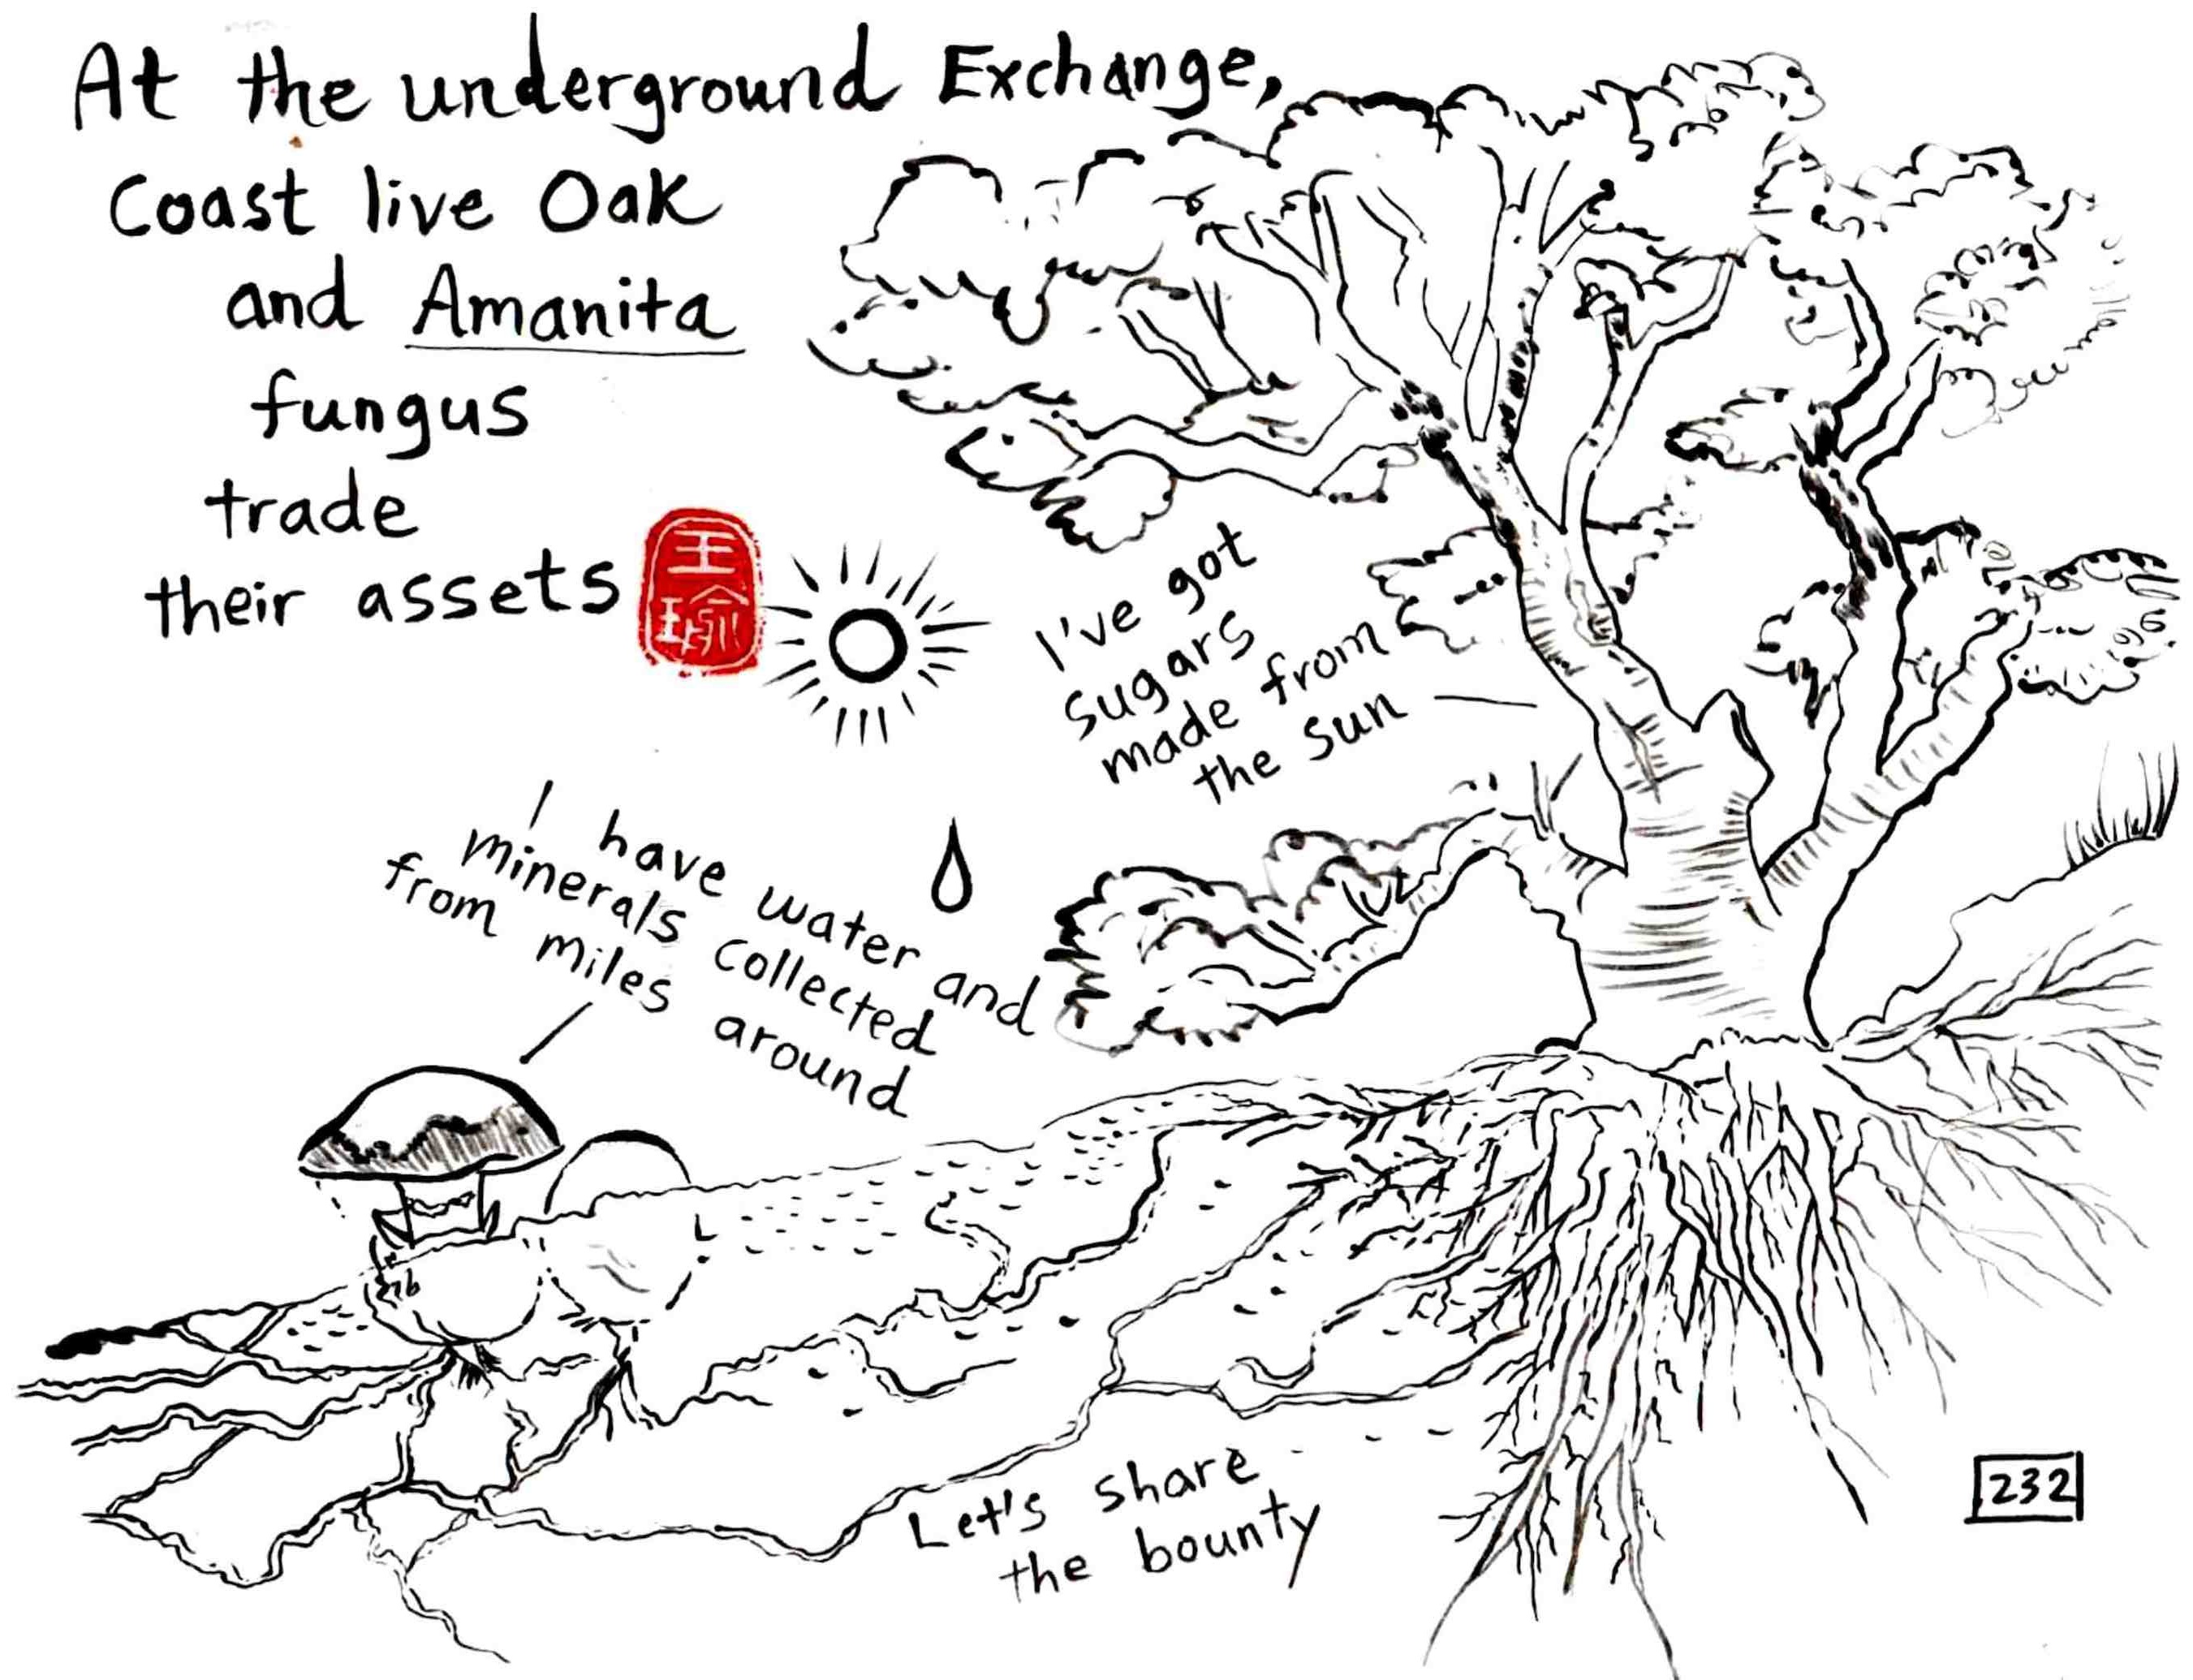 At the underground Exchange,
Coast live Oak
and Amanita
fungus
trade
their assets
王
瑜
I've got
sugars
made from
the sun
I have water and
minerals collected
from miles around
Let's share
the bounty
232